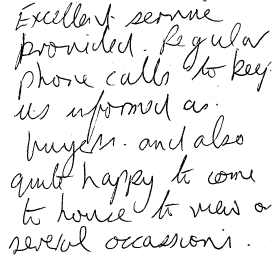 Excellent service
provided. Regular
phone calls to keep
us informed as
buyers. and also
quite happy to come
to house to view on
several occassions.